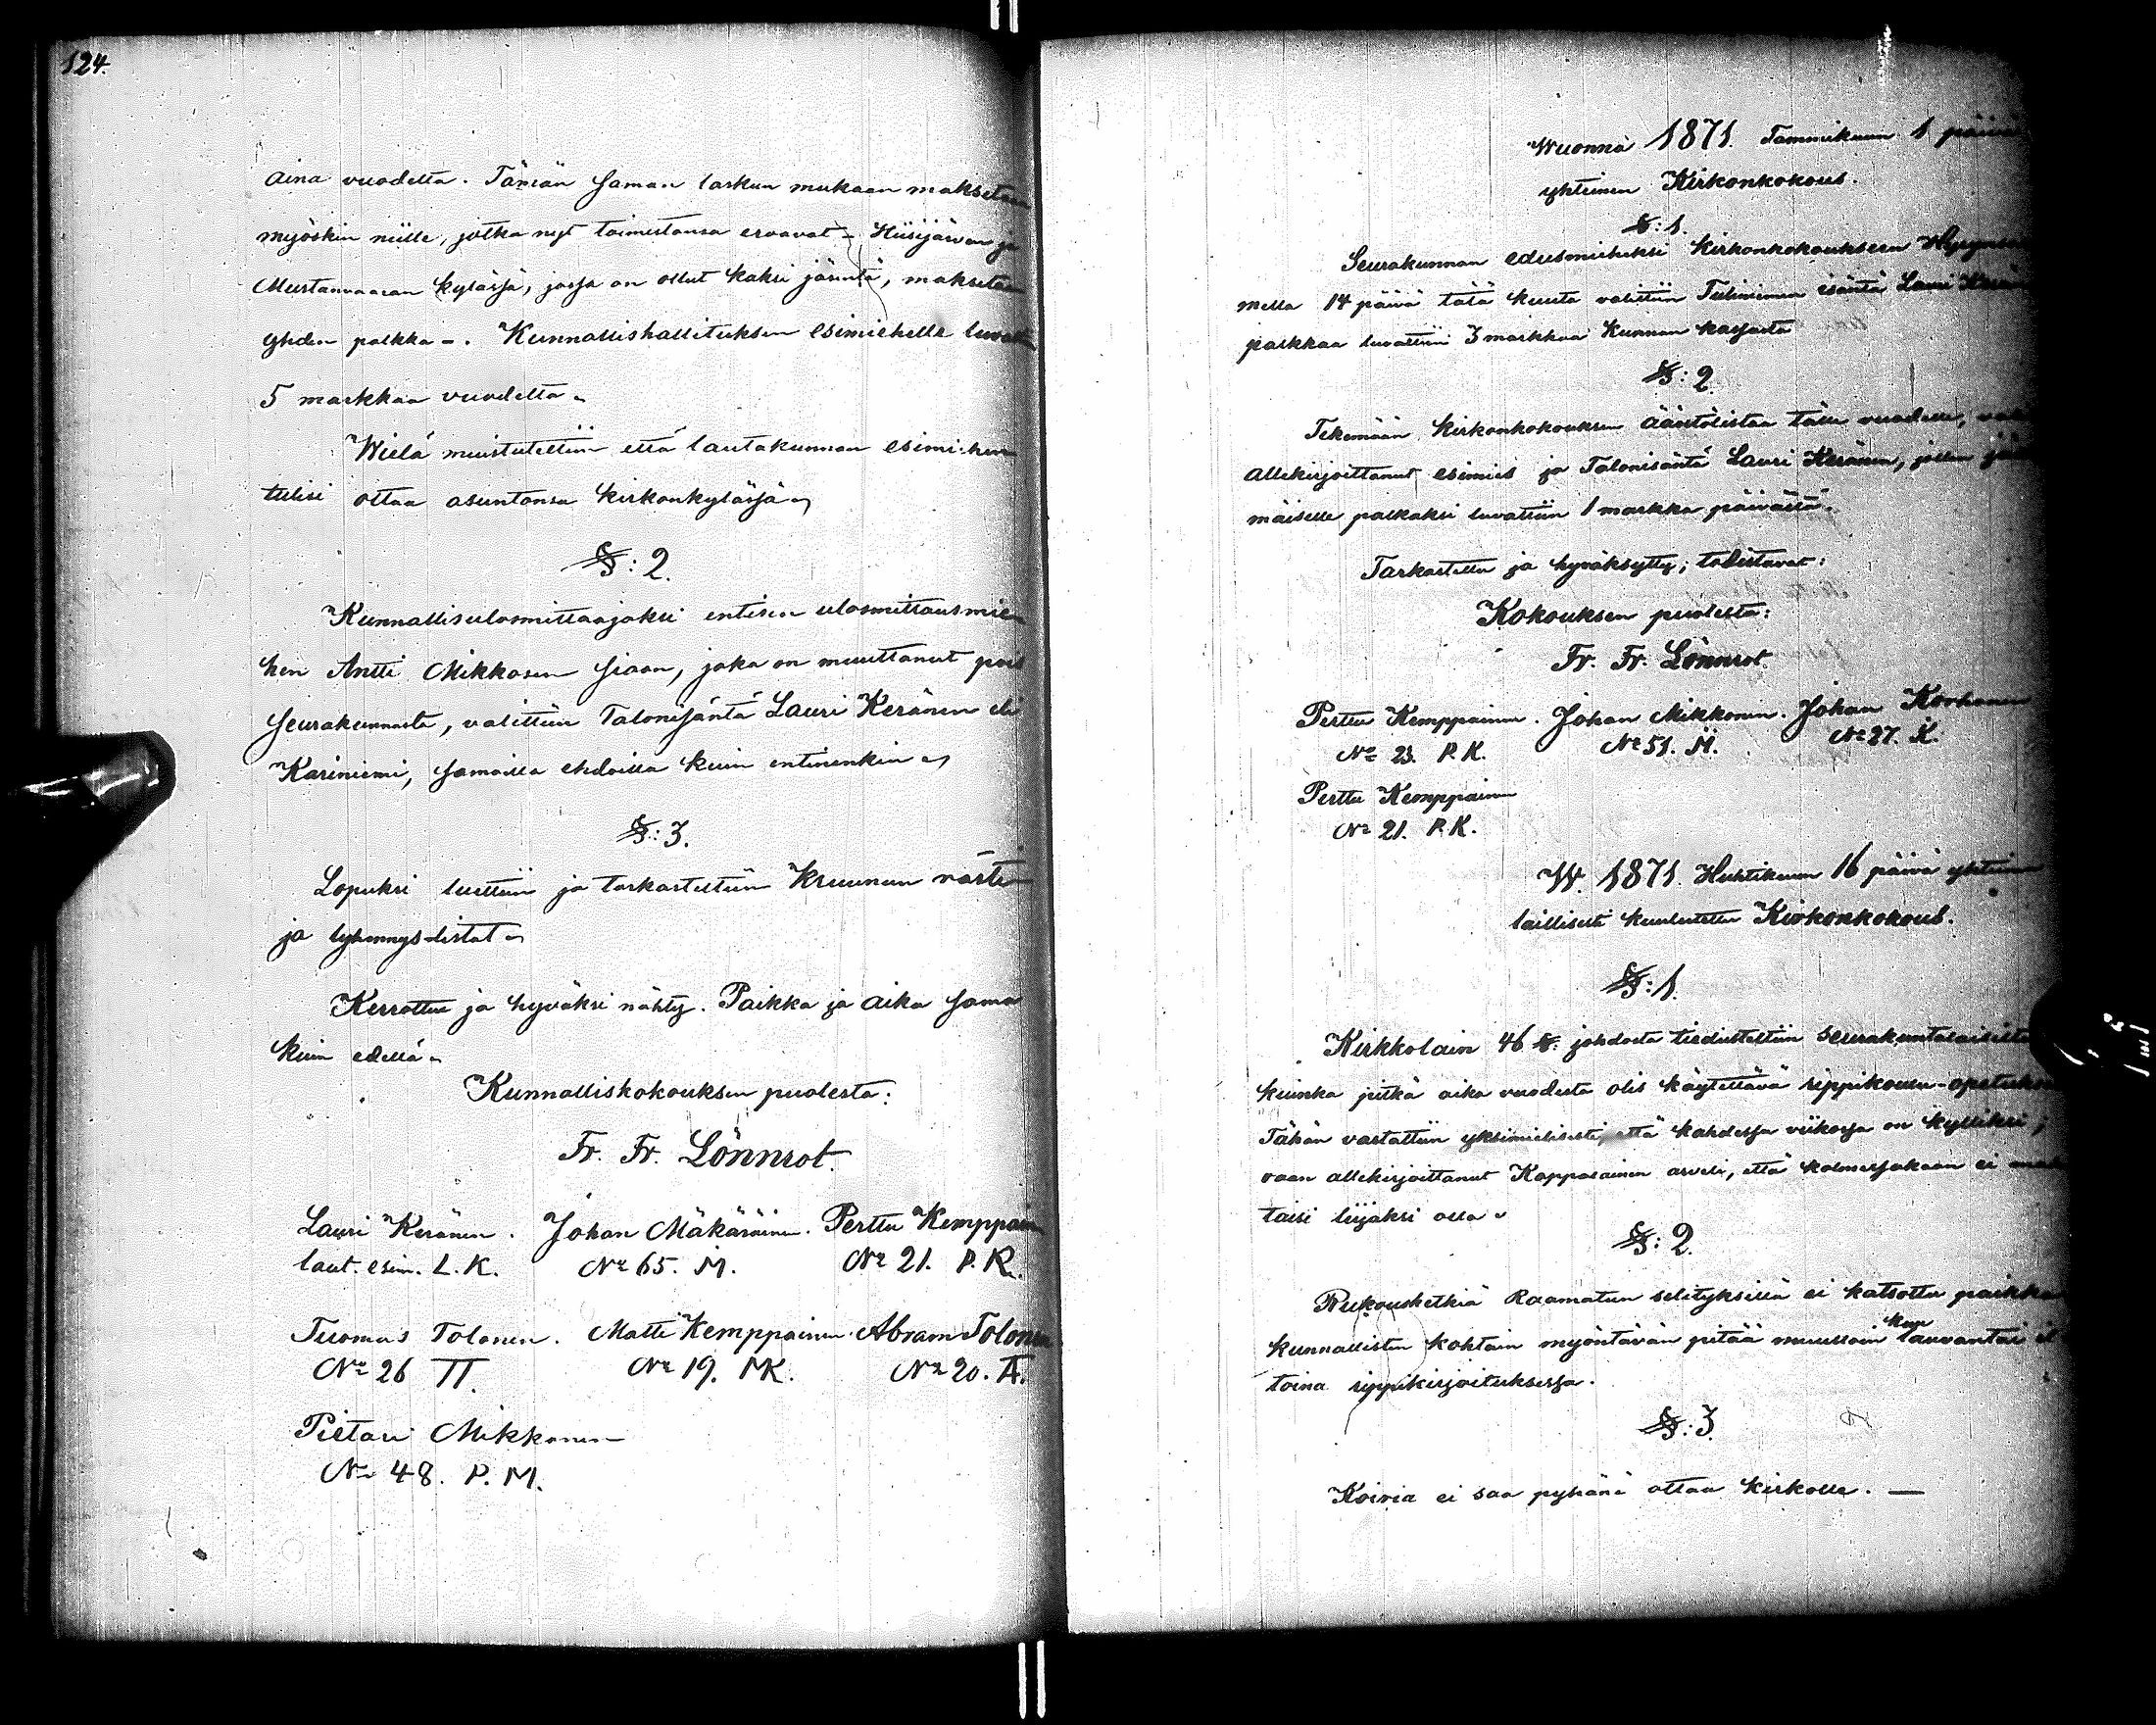 124.
aina vuodelta. Tämän saman laskun mukaan maksetaan
myöskin niille, jotka nyt toimestansa eroavat – Hiisijärven ja
Mustanvaaran kylässä, jossa on ollut kaksi jäsentä, maksetaan
yhden palkka –. Kunnallishallituksen esimiehelle luvattiin
5 markkaa vuodelta.
Wielä muistutettiin että lautakunnan esimiehen
tulisi ottaa asuntonsa kirkonkylässä.
§: 2.
Kunnallisulosmittaajaksi entisen ulosmittausmie-
hen Antti Mikkosen siaan, joka on muuttanut pois
seurakunnasta, valittiin Talonisäntä Lauri Keränen eli
Kariniemi, samoilla ehdoilla kuin entinenkin.
§: 3.
Lopuksi luettiin ja tarkasteltiin Kruunun rästi-
ja lyhennys-listat.
Kerrottu ja hyväksi nähty. Paikka ja aika sama
kuin edellä.
Kunnalliskokouksen puolesta:
Fr. Fr. Lönnrot.
Lauri Keränen. Johan Mäkäräinen. Perttu Kemppainen
laut. esim. L. K. No 65. M. No 21. P. K.
Tuomas Tolonen. Matti Kemppainen. Abram Tolonen
No 26 TT. No 19. MK. No 20. A.
Pietari Mikkonen
No 48. P. M.
Wuonna 1871. Tammikuun 1 päivä
yhteinen Kirkonkokous.
§: 1.
Seurakunnan edusmieheksi kirkonkokoukseen Hyryn
mella 14 päivä tätä kuuta valittiin isäntä Lauri Keränen
palkkaa luvattiin 3 markkaa Kunnan kassasta
§: 2
Tekemään kirkonkokouksen ääntölistaa tälle vuodelle,
allekirjoittanut esimies ja Talonisäntä Lauri Keränen, jollen
mäiselle palkaksi luvattiin 1 markka päivältä.
Tarkastettu ja hyväksytty; todistavat:
Kokouksen puolesta:
Fr. Fr. Lönnrot.
Perttu Kemppainen. Johan Mikkonen. Johan Korhonen
No 23. P. K. No 51. M. No 27. K.
Perttu Kemppainen
No 21. P. K.
W. 1871. Huhtikuun 16 päivä yhteinen
laillisesti kuulutettu Kirkonkokous.
§: 1.
Kirkkolain 46 §: johdosta tiedusteltiin seurakuntalaisilta
kuinka pitkä aika vuodesta olis käytettävä rippikoulu-opetukseen
Tähän vastattiin yksimielisesti, että kahdessa viikossa on kylliksi;
vaan allekirjoittanut Kappalainen arveli, että kolmessakaan ei
taisi liijaksi olla.
§: 2.
Rukoushetkiä Raamatun selityksillä ei katsottu paikka
kunnallisten kohtain myöntävän pitää muulloin kun lauvantai il
toina rippikirjoituksessa.
§: 3.
Koiria ei saa pyhänä ottaa kirkolle. —